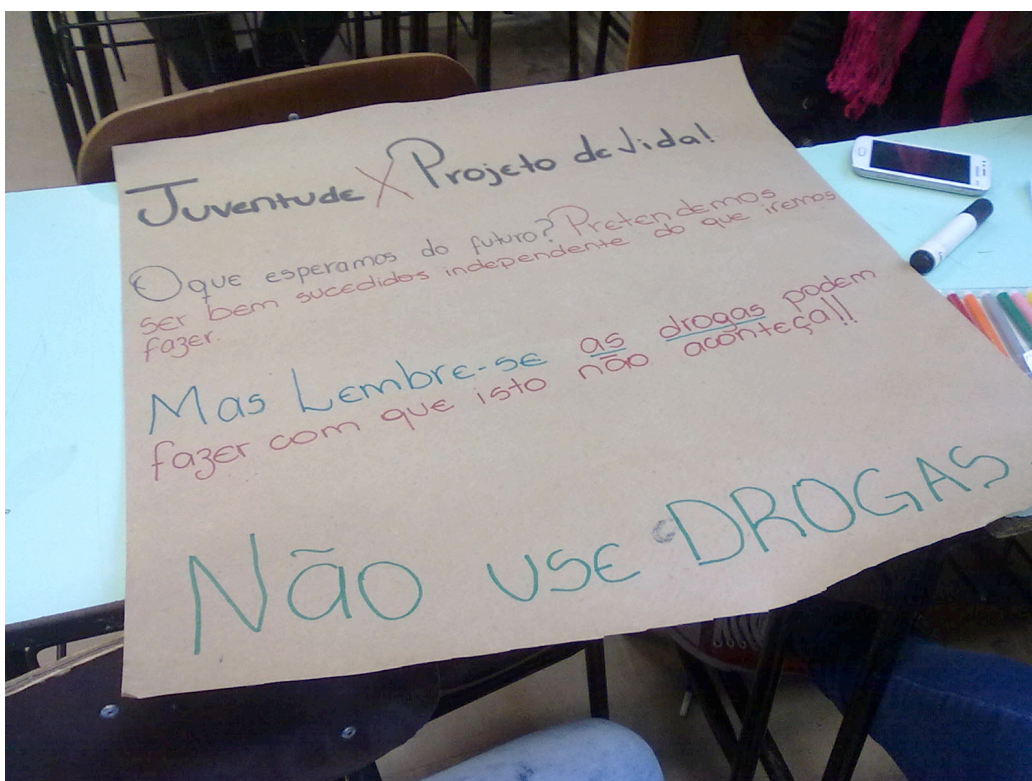 Juventude X Projeto de Vida!
O que esperamos do futuro? Pretendemos
ser bem sucedidos independente do que iremos
fazer.
Mas Lembre-se as drogas podem
fazer com que isto não aconteça!!
Não use DROGAS